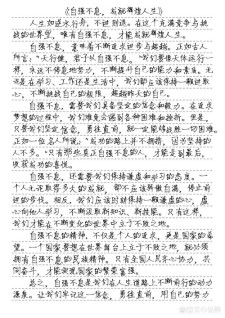 《自强不息，成就辉煌人生》
人生如逆水行舟，不进则退。在这个充满竞争与挑
战的世界里，唯有自强不息，才能成就辉煌人生。
自强不息，意味着不断追求进步与超越。正如古人
所言："天行健，君子以自强不息。"我们要像天体运行一
样，永远不停息地努力，不断提升自己的能力和素质。无
论是在学习、工作还是生活中，我们都应该保持一颗进取
心，不断挑战自己的极限，超越昨天的自己。
自强不息，需要我们具备坚定的信念和毅力。在追求
梦想的过程中，我们难免会遇到各种困难和挫折。但是，
只要我们坚定信念，勇往直前，就一定能够战胜一切困难。
正如一位名人所说："成功的路上并不拥挤，因为坚持的
人不多。"只有那些真正自强不息的人，才能走到最后，
收获成功的喜悦。
自强不息，还需要我们保持谦虚和学习的态度。一
个人无论取得多大的成就，都不应该骄傲自满，停止前
进的步伐。相反，我们应该时刻保持一颗谦虚的心，虚
心向他人学习，不断汲取新知识、新技能。只有这样，
我们才能在不断变化的世界中立于不败之地。
自强不息的精神，不仅是个人的追求，更是国家的希
望。一个国家要想在世界舞台上立于不败之地，就必须
拥有自强不息的民族精神。只有全国人民齐心协力，共
同奋斗，才能实现国家的繁荣富强。
总之，自强不息是我们在人生道路上不断前行的动力
源泉。让我们牢记这一信念，勇往直前，用自己的努力